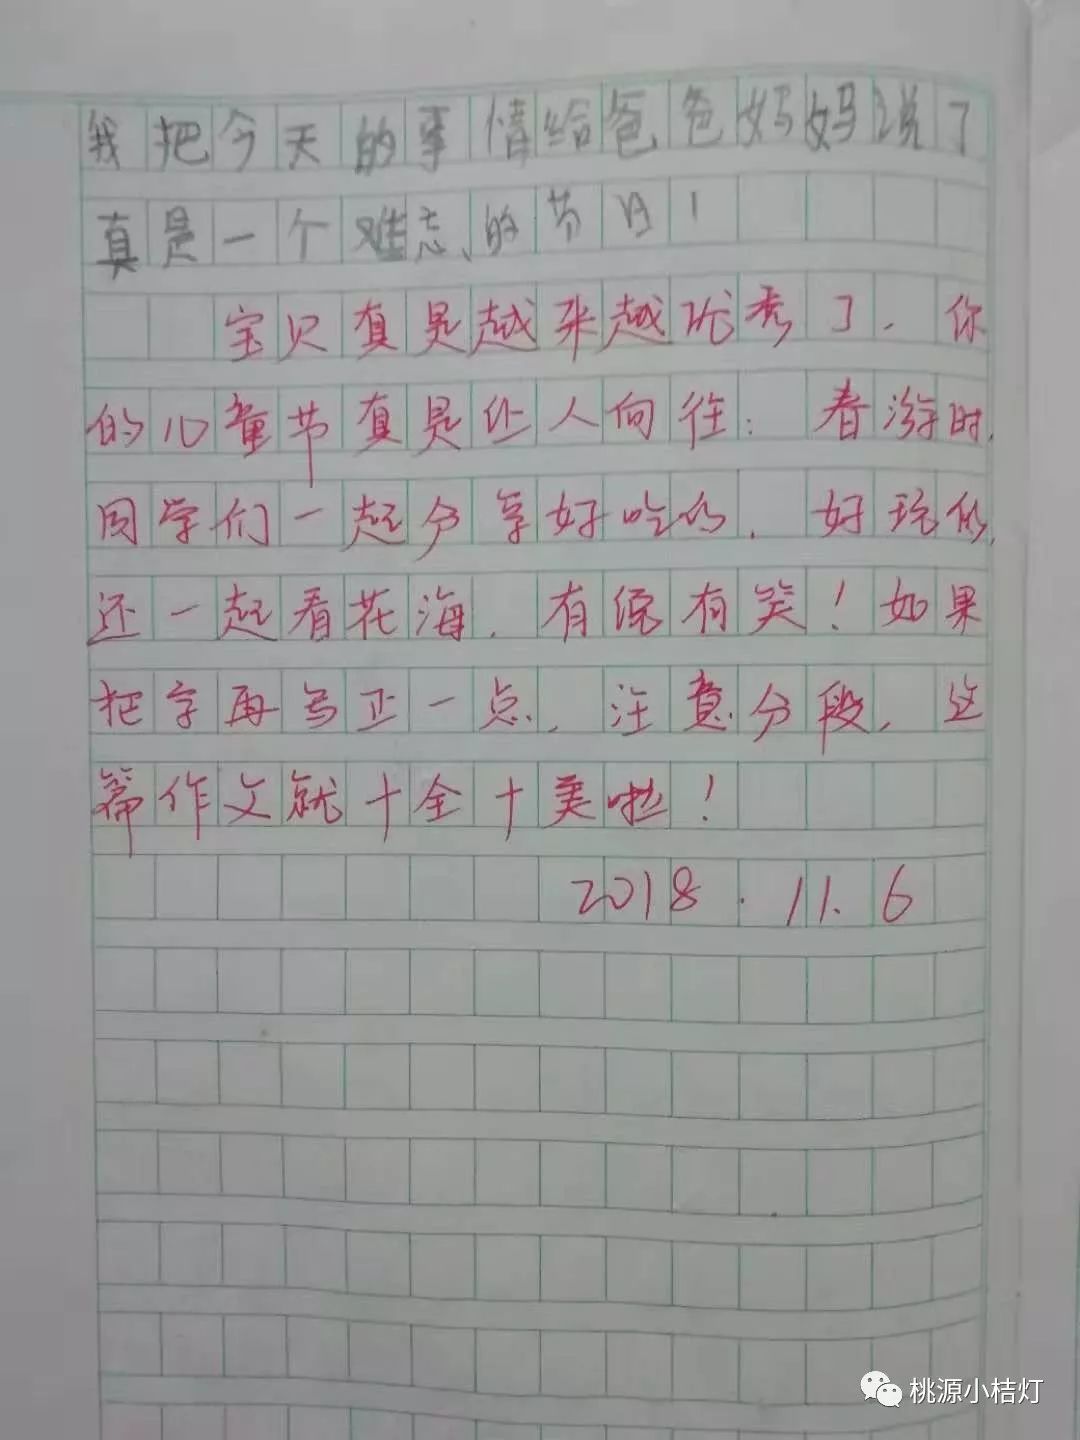 我把今天的事情给爸爸妈妈说了
真是一个难忘的节日!
宝贝真是越来越优秀了,你
的儿童节真是让人向往:春游时,
同学们一起分享好吃的、好玩的,
还一起看花海,有说有笑!如果
把字再写正一点,注意分段,这
篇作文就十全十美啦!
2018.11.6
桃源小桔灯